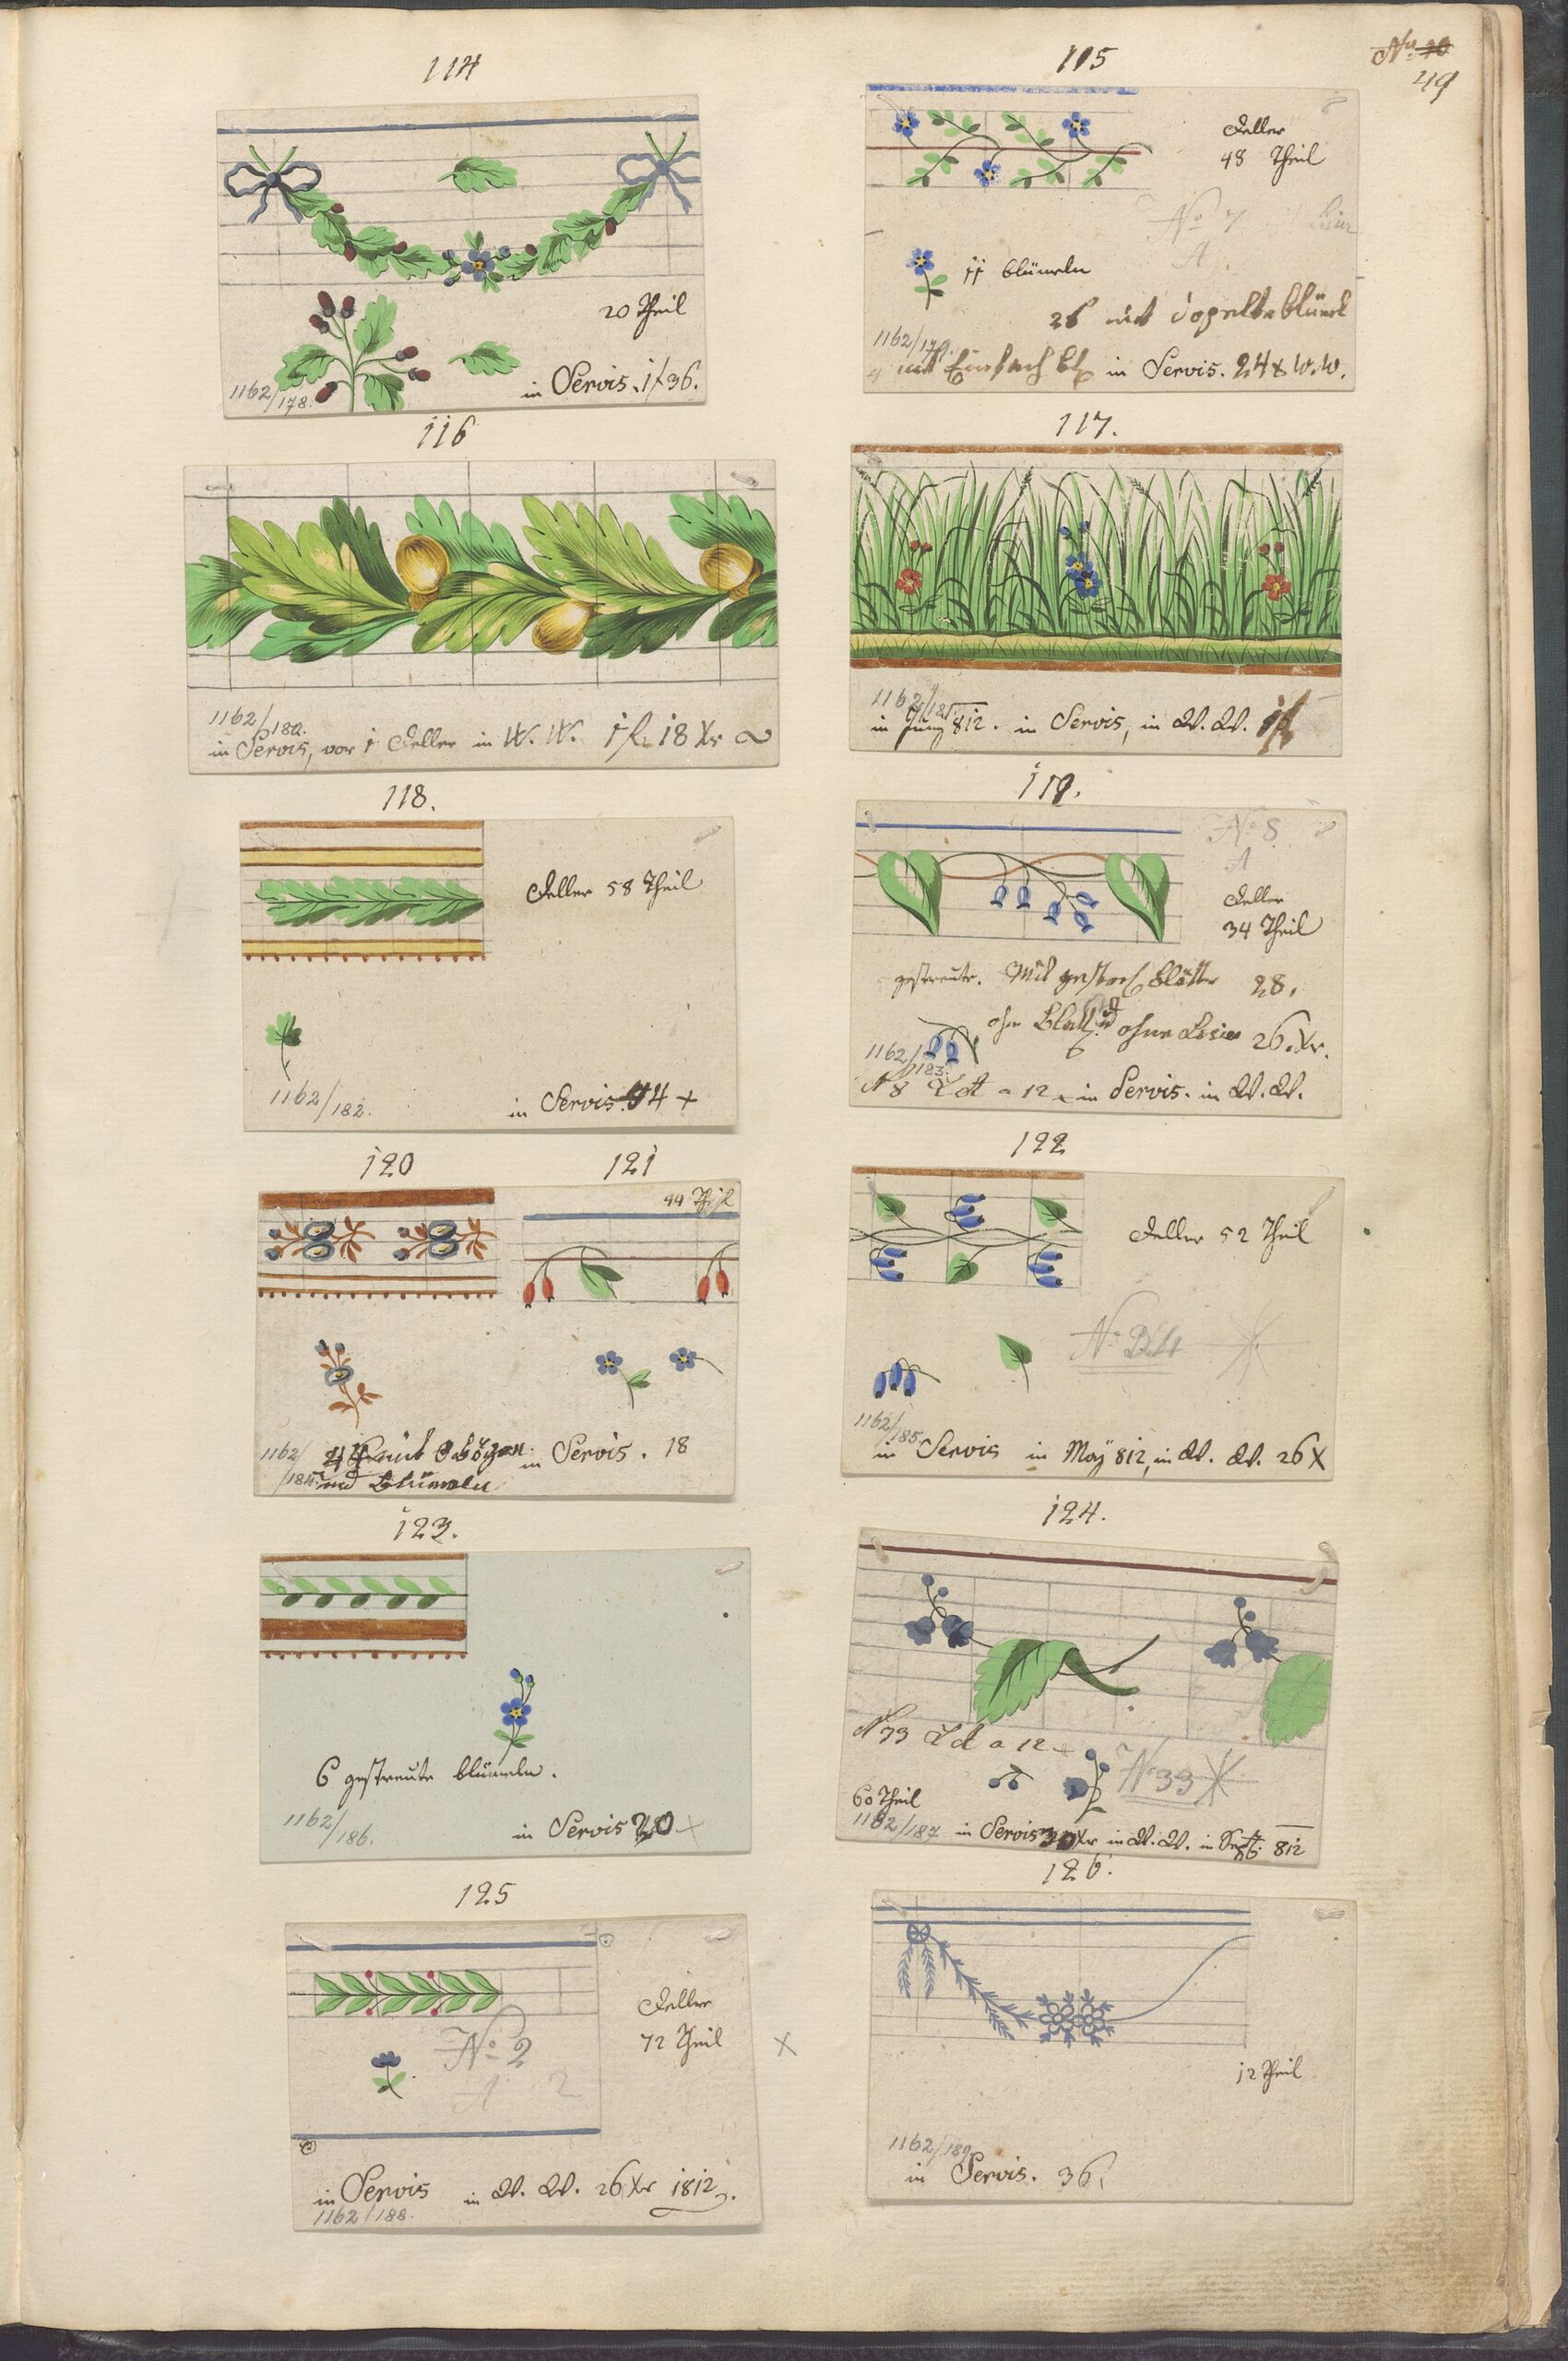 No 10
49
114
20 Theil
1162/178.
in Servis. 1f 36.
115
Teller
48 Theil
No 7
11 blümeln
26 mit dopelte blüml
1162/179.
mit Einfach bl in Servis. 24 x W.W.
116
1162/180.
in Servis, vor 1 Teller in W. W. 1f. 18 Xr
117.
1162/181.
in Juny 812. in Servis, in W. W. 1f
118.
Teller 58 Theil
1162/182.
in Servis. 44 +
119.
No 8
A
Teller
34 Theil
gestreute. Mit gestreu blätter 28,
ohne Blatt und ohne Lisier 26. Xr.
1162/183.
N 8 Ld a 12 in Servis. in W. W.
120
121
44 Theil
1162/184.
44 mit bögen in Servis. 18
und Blümeln
122
Teller 52 Theil
No 34
1162/185.
in Servis in May 812, in W. W. 26 X
123.
6 gestreute blümeln.
1162/186.
in Servis 20
124.
N 33 Ld a 12
No 33
60 Theil
1162/187 in Servis 30 Xr in W. W. in Sept. 812
125
Teller
72 Theil
No 2
A 2
in Servis in W. W. 26 Xr 1812.
1162/188.
126.
12 Theil
1162/189
in Servis. 36.